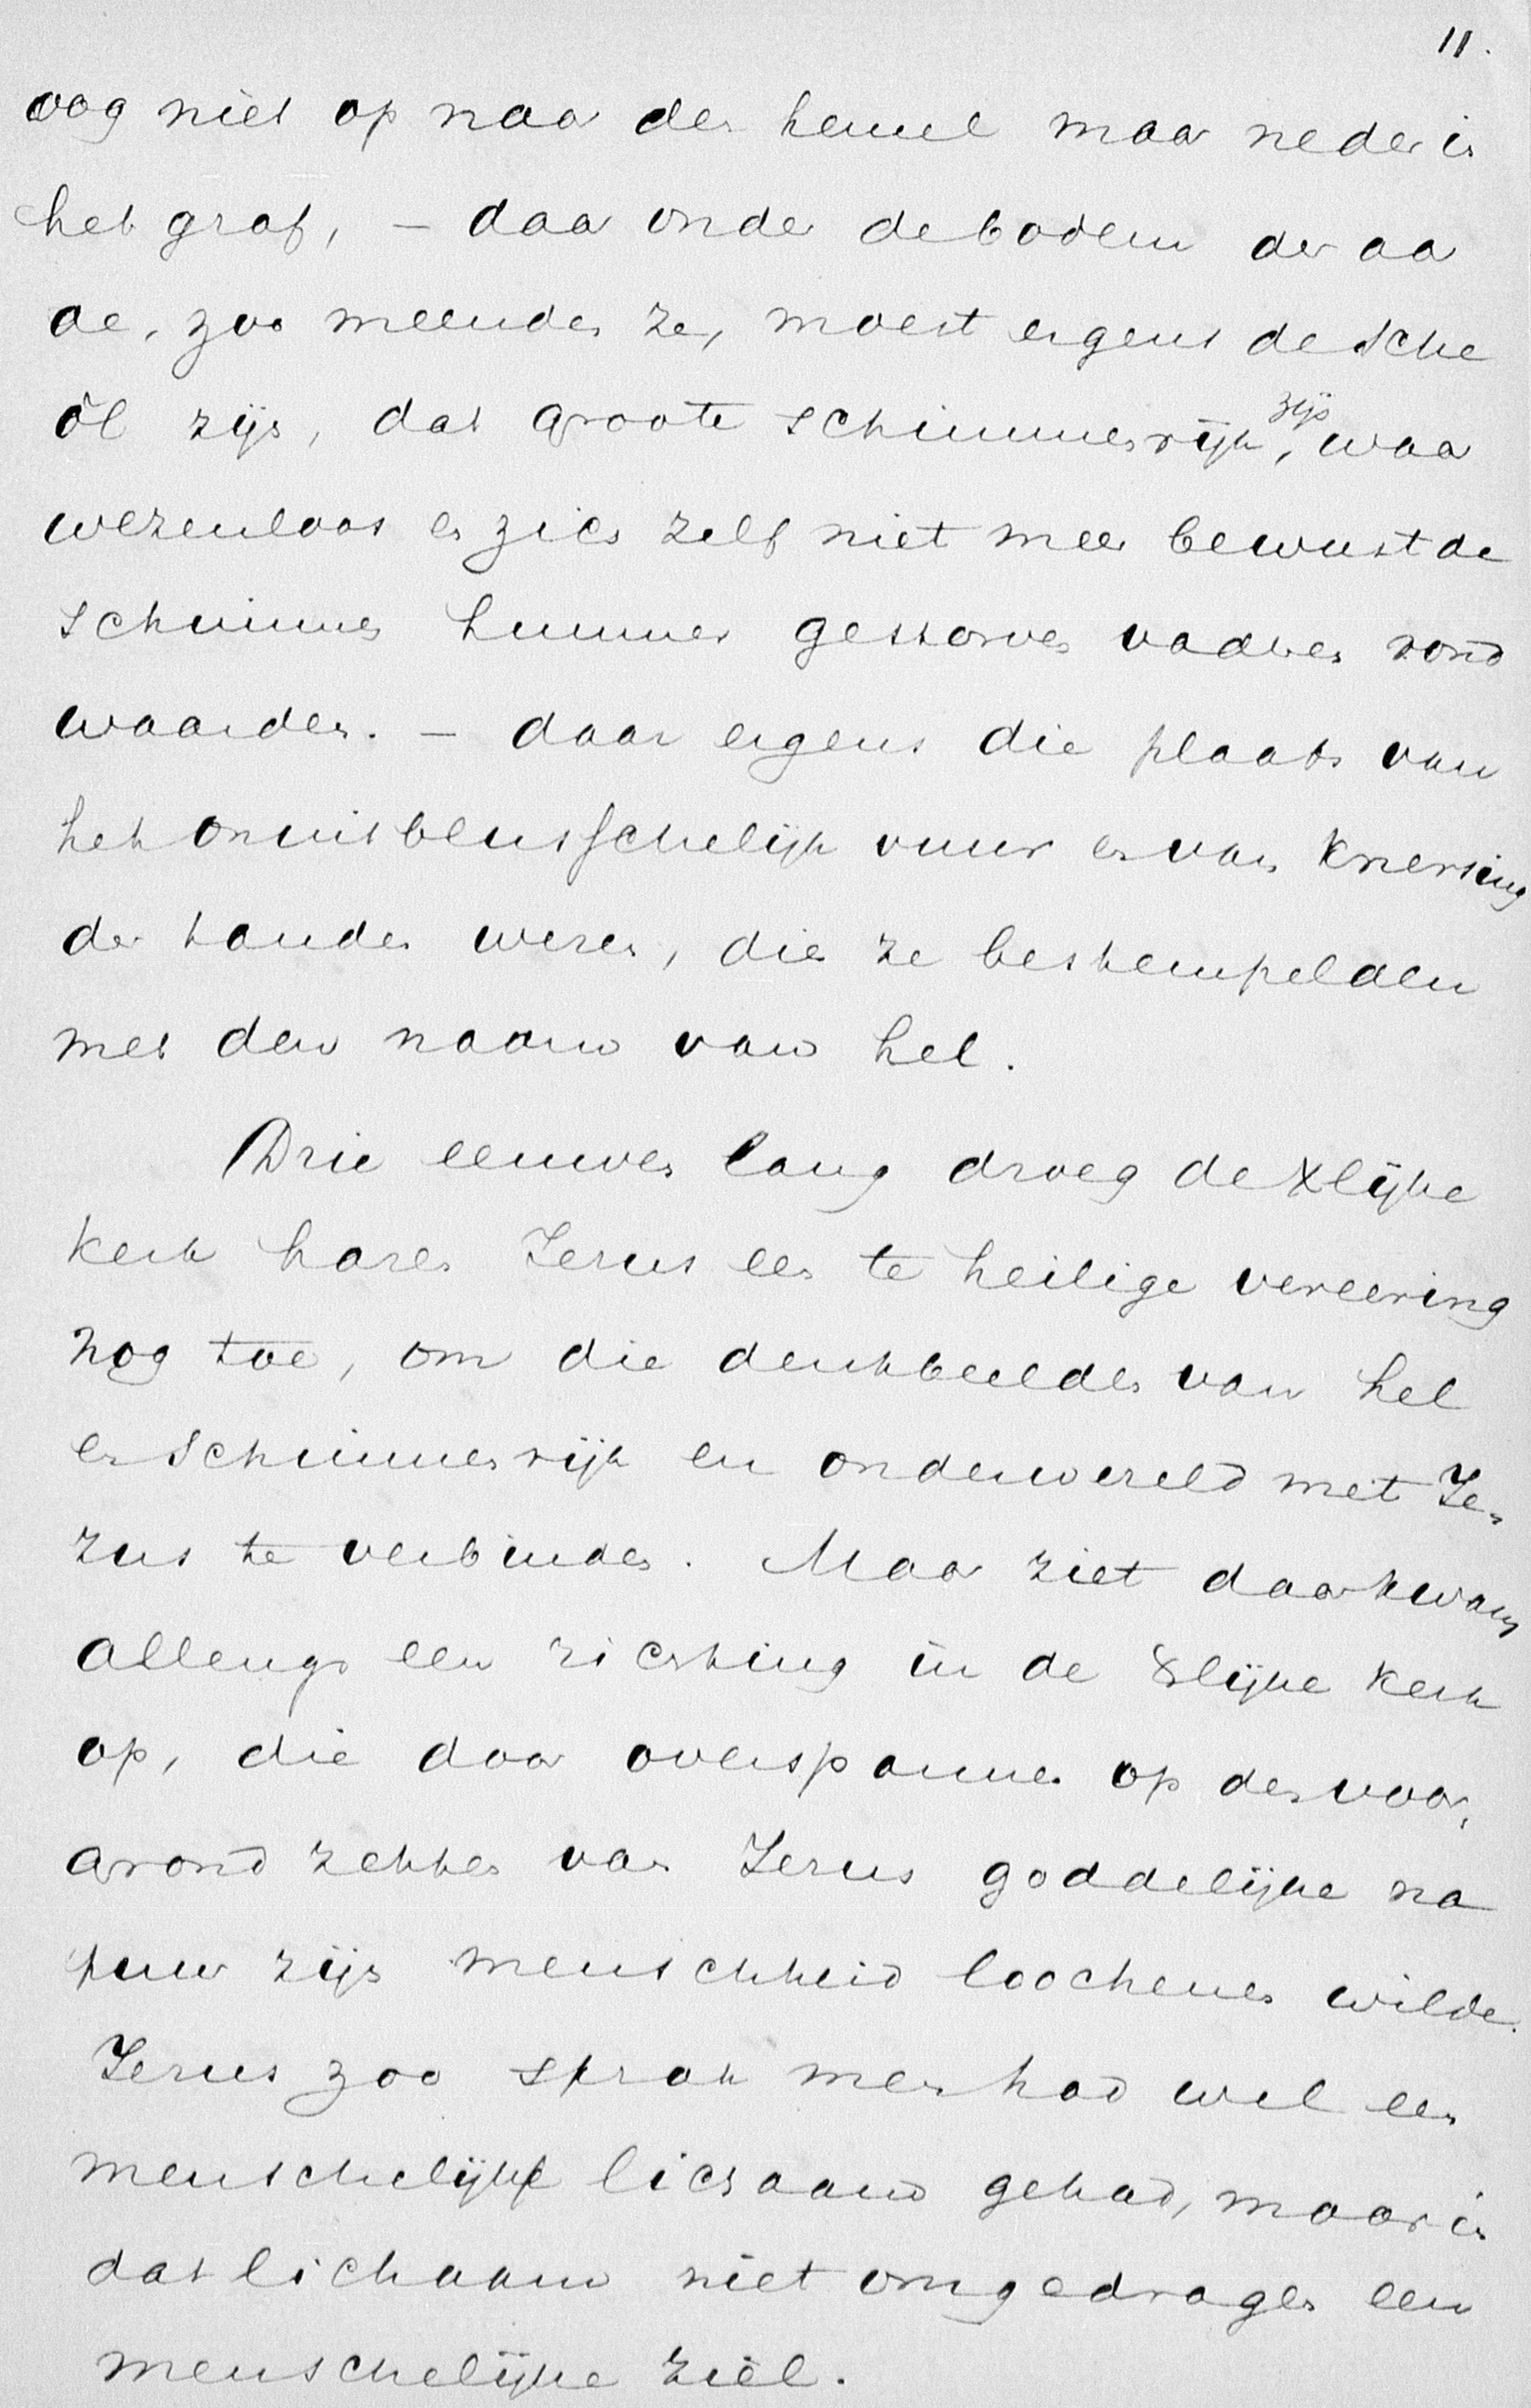 11.
oog niet op naar den hemel maar neder in
het graf, – daar onder de bodem der aar
de, zoo meenden ze, moest ergens de Sche
ôl zijn, dat groote schimmenrijk zijn, waar
wezenloos en zich zelf niet meer bewust de
schimmen hunner gestorven vaderen rond
waarden. – daar ergens die plaats van
het onuitblusschelijk vuur en van knersing
der tanden wezen, die ze bestempelden
met den naam van hel.
Drie eeuwen lang droeg de Xlijke
kerk haren Jezus een te heilige vereering
nog toe, om die denkbeelden van hel
en schimmenrijk en onderwereld met Je-
zus te verbinden. Maar ziet daar kwam
allengs een richting in de Xlijke kerk
op, die door overspannen op den voor,
grond zetten van Jezus goddelijke na
tuur zijn menschheid loochenen wilde.
Jezus zoo sprak men had wel een
menschelijk lichaam gehad, maar in
dat lichaam niet omgedragen een
menschelijke ziel.